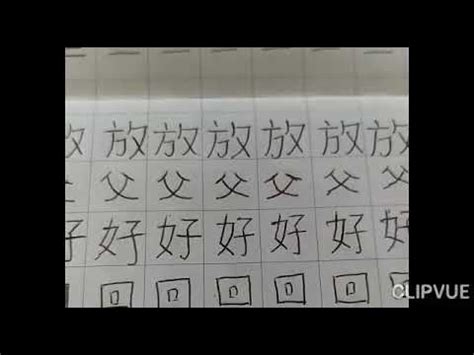 放 放 放 放 放 放
父 父 父 父 父 父
好 好 好 好 好 好
回 回 回 回 回 回
CLIPVUE